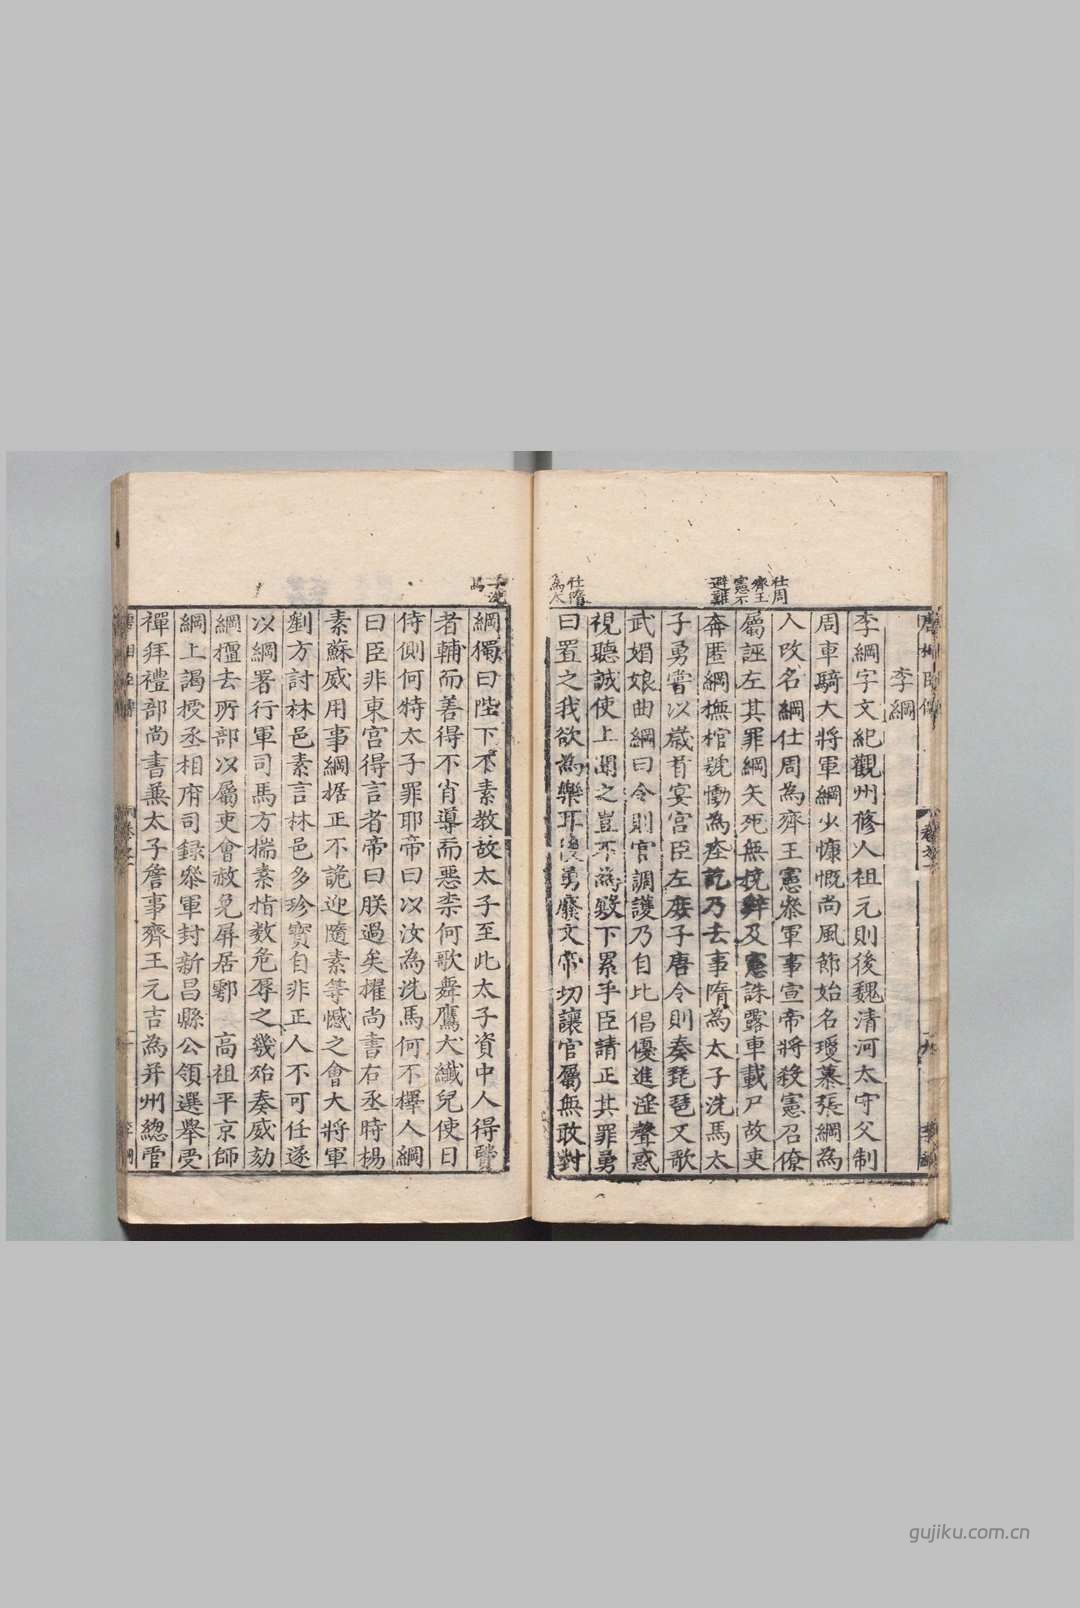 李綱
李綱字文紀觀州蓨人祖元則後魏清河太守父制
周車騎大將軍綱少慷慨尚風節始名瑗慕張綱為
人改名綱仕周為齊王憲叅軍事宣帝將殺憲召僚
屬誣左其罪綱矢死無撓辭及憲誅露車載尸故吏
奔匿綱撫棺號慟為瘞訖乃去事隋為太子洗馬太
子勇嘗以歳首宴宮臣左庶子唐令則奏琵琶又歌
武媚娘曲綱曰令則官調護乃自比倡優進淫聲惑
視聽誠使上聞之豈不為殿下累乎臣請正其罪勇
曰置之我欲為樂耳後勇廢文帝切讓官屬無敢對
仕周
齊王
憲不
避難
仕隋
為太
子洗
馬
綱獨曰陛下不素教故太子至此太子資中人得賢
者輔而善得不肖導而惡柰何歌舞鷹犬纎兒使日
侍側何特太子罪耶帝曰以汝為洗馬何不擇人綱
曰臣非東宮得言者帝曰朕過矣擢尚書右丞時楊
素蘇威用事綱据正不詭迎隨素等憾之會大將軍
劉方討林邑素言林邑多珍寶自非正人不可任遂
以綱署行軍司馬方揣素指数危辱之幾殆奏威劾
綱擅去所部以屬吏會赦免屏居鄠　高祖平京師
綱上謁授丞相府司録叅軍封新昌縣公領選舉受
禪拜禮部尚書兼太子詹事齊王元吉為并州總管